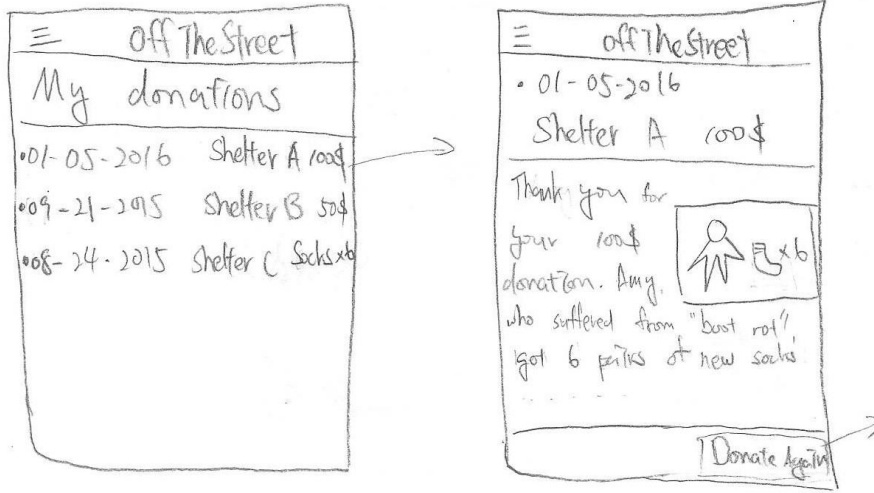 OffTheStreet
My donations
•01-05-2016 Shelter A 100$
•09-21-2015 Shelter B 50$
•08-24-2015 Shelter C Socks x6
OffTheStreet
• 01-05-2016
Shelter A 100$
Thank you for
your 100$
donation. Amy,
x6
who suffered from "boot rot"
got 6 pairs of new socks
. . . . . .
Donate Again